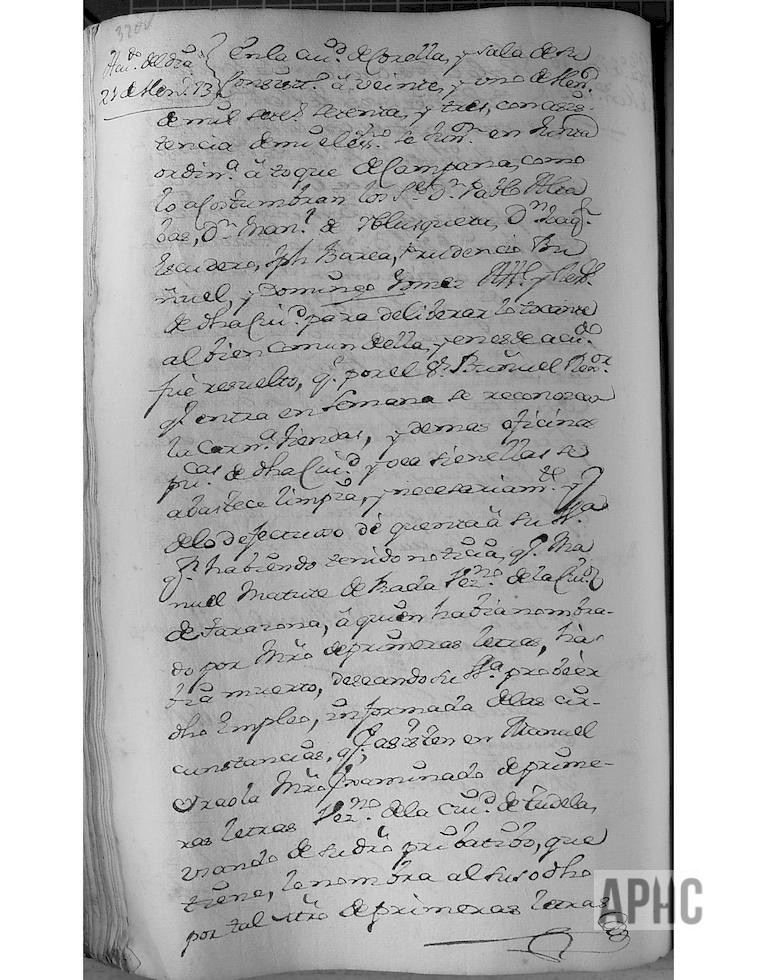 320v
Au.do del dia
21 de Hen.o 73
En la ciu.d de Corella, y sala de su
Consist.l à veinte y uno de Hen.o
de mil sete.s setenta, y tres, con asis-
tencia de mi el ess.no se jun.n en Junta
ordin.a à toque de Campana, como
lo acostumbran los S.es D.n Pablo Mira
bas, D.n Man.l de Musquetu, D.n Joaq.n
Escudero, Jph Barea, Prudencio Bu
ñuel, y Domingo Gomez Alld.s y Rex.s
de dha Ciu.d para deliberar lo tocante
al bien comun della, y en este acu.do
fue resuelto, q.e por el S.r Buñuel Rex.or
q.e entra en semana se reconozcan
la Carn.a tiendas, y demas oficinas
pu.cas de dha Ciu.d y vea si en ellas se
abastece limpia, y necesariam.te y
de lo defectuoso dè quenta à su S.a
q.e habiendo tenido noticia, q.e Ma
nuel Matute de Rada Vez.no de la Ciu.d
de Tarazona, à quien habia nombra-
do por Mrõ de primeras letras, ha-
bia muerto, deseando su S.a probèer
dho Empleo, informada de las cir-
cunstancias, q.e asisten en Manuel
Oraola Mrõ Examinado de prime-
ras letras Vez.no de la ciu.d de tudela,
usando de su drõ pribatibo, que
tiene, le nombra al susodho
por tal Mrõ de primeras letras
APHC